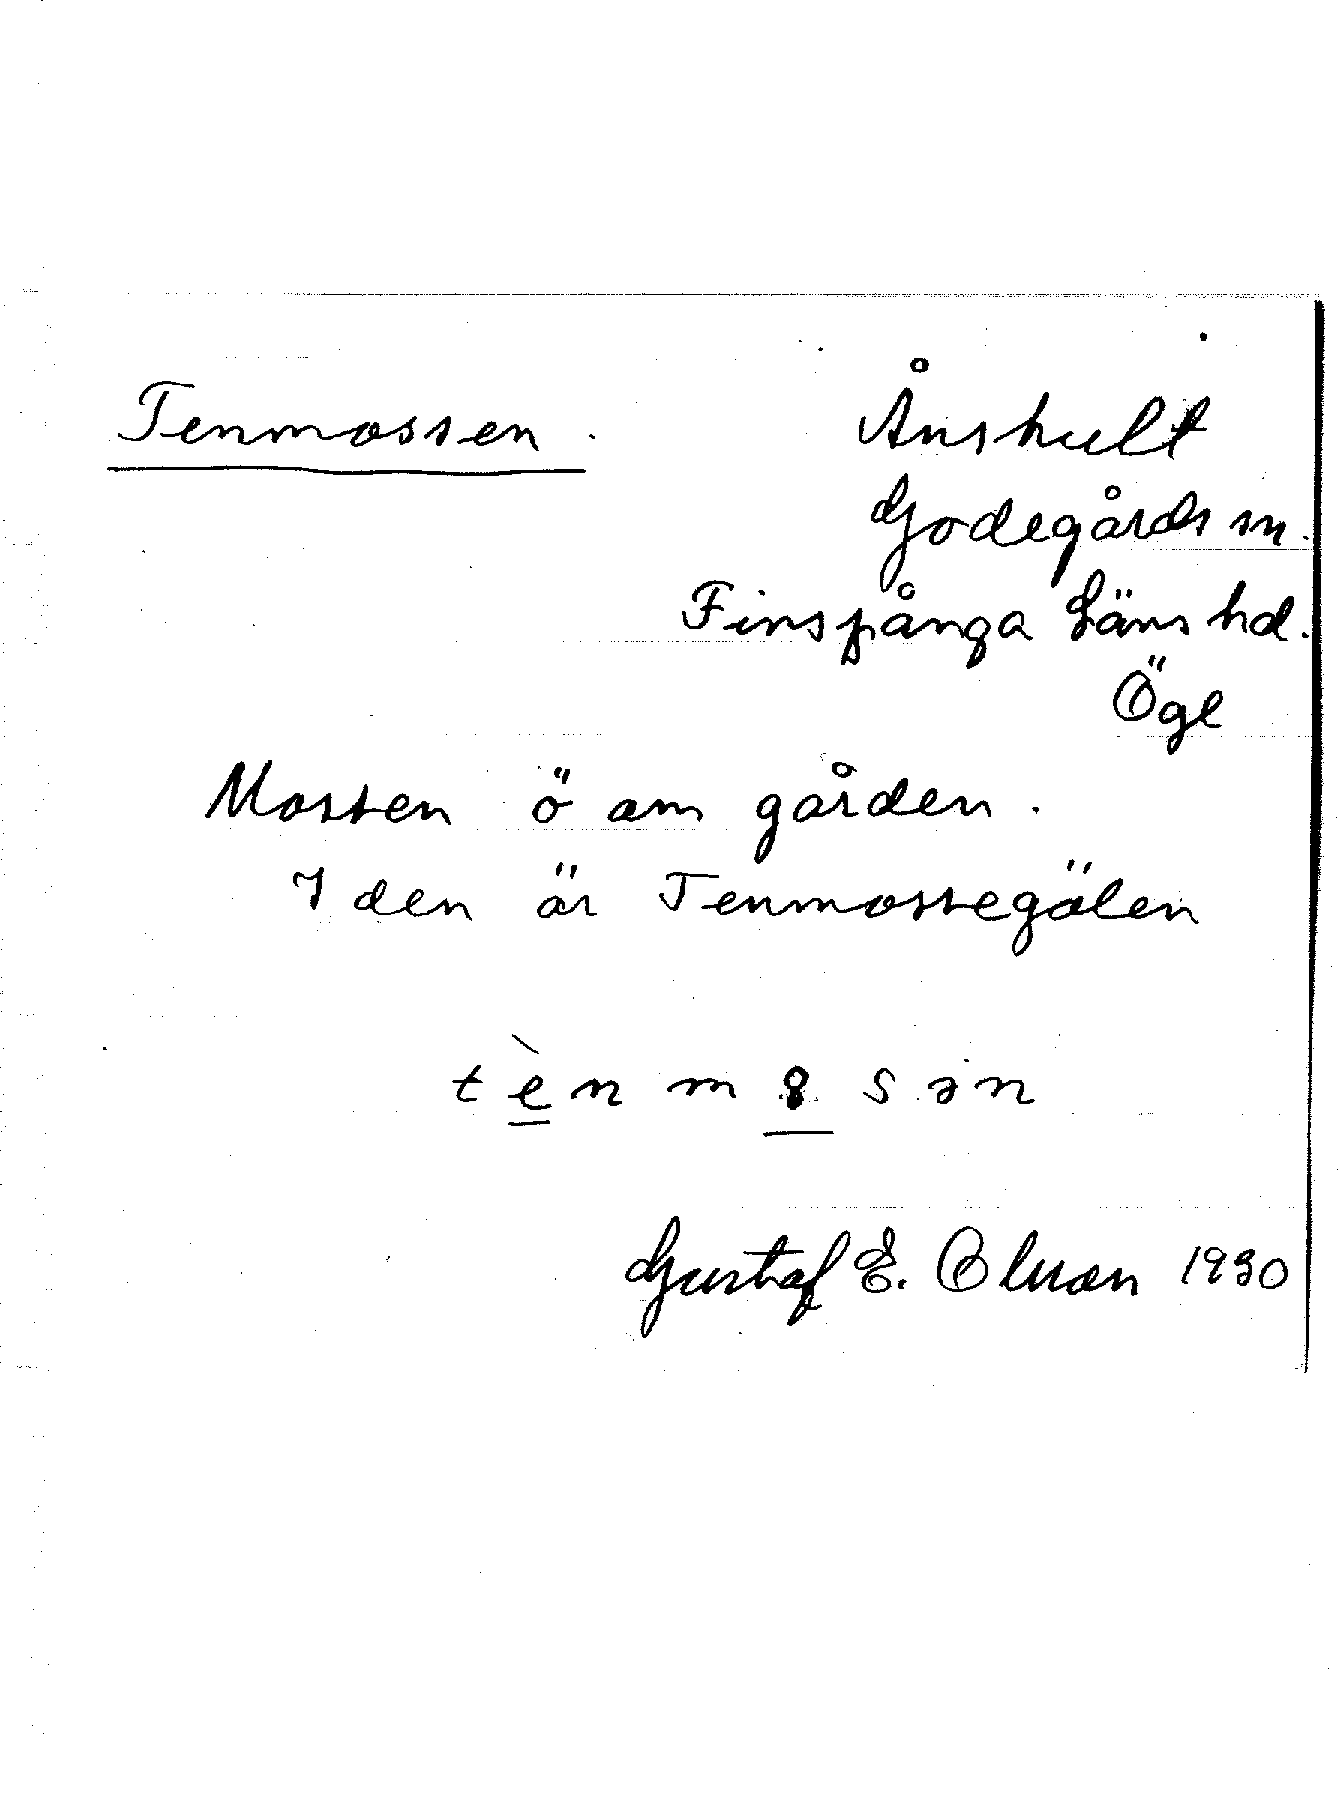 Tenmossen.
Ånshult
Godegårds sn.
Finspånga Läns hd.
Ögl
Mossen ö om gården.
I den är Tenmossegölen
tènmȣsən
Gustaf E. Olsson 1930